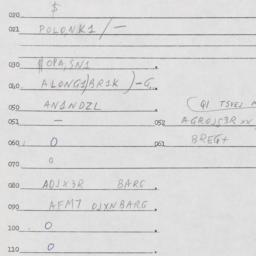 020 $
021 POLO,NK1/—
030 $OPA,SN1
040 ALONG1)BR1K)-G.
050 AN1NDZL (Q1 TSVEL
051 — 052 AGROJS3R
060 0 061 BREG+
070 0
080 ADJX3R BARG
090 AFM7 OJXNBARG
100 0
110 0